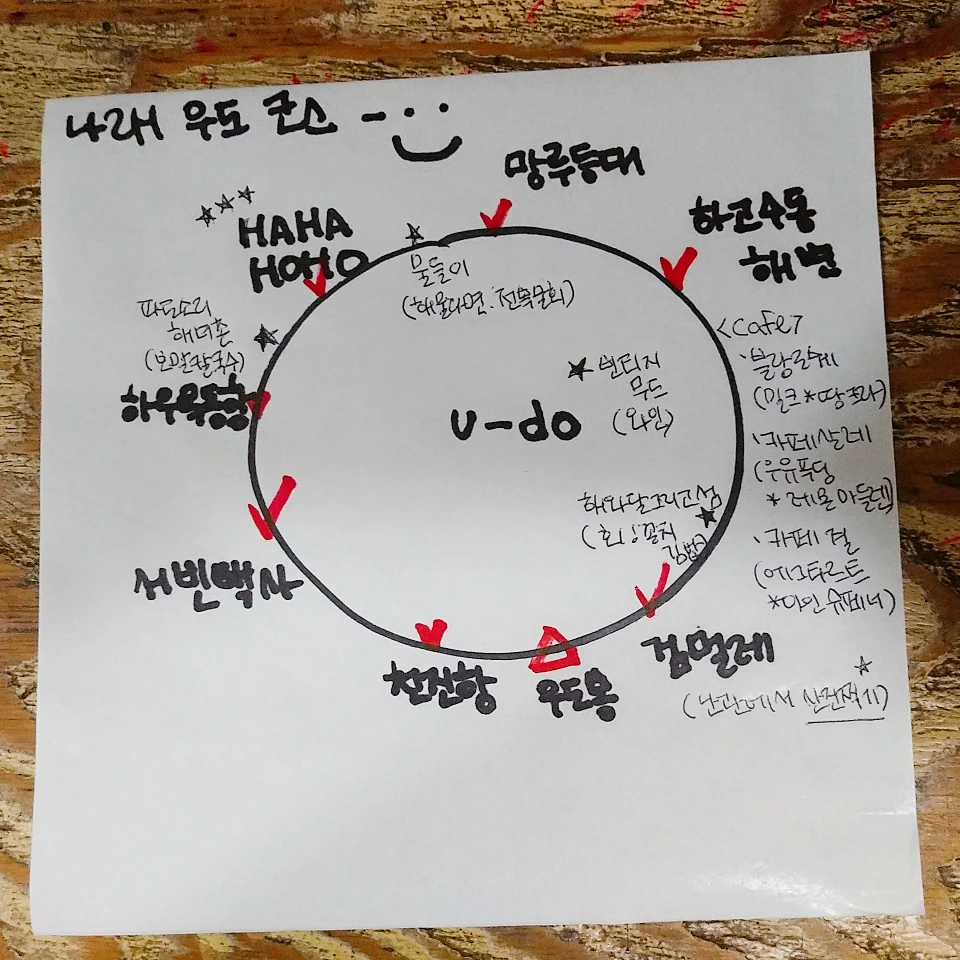 나래 우도 코스
망루등대
하고수동
해변
HAHA
HOHO
물들이
(해물라면, 전복물회)
파도소리
해녀촌
(보말칼국수)
하우목동항
<cafe>
블랑로쉐
(밀크*땅콩라)
빈티지
무드
(와인)
U-do
카페살레
(우유푸딩
*레몬마들렌)
해와달그리고섬
(회, 꽁치
김밥)
카페 결
(에그타르트
*아인슈페너)
서빈백사
천진항
우도봉
검멀레
(난간에서 사진찍기)